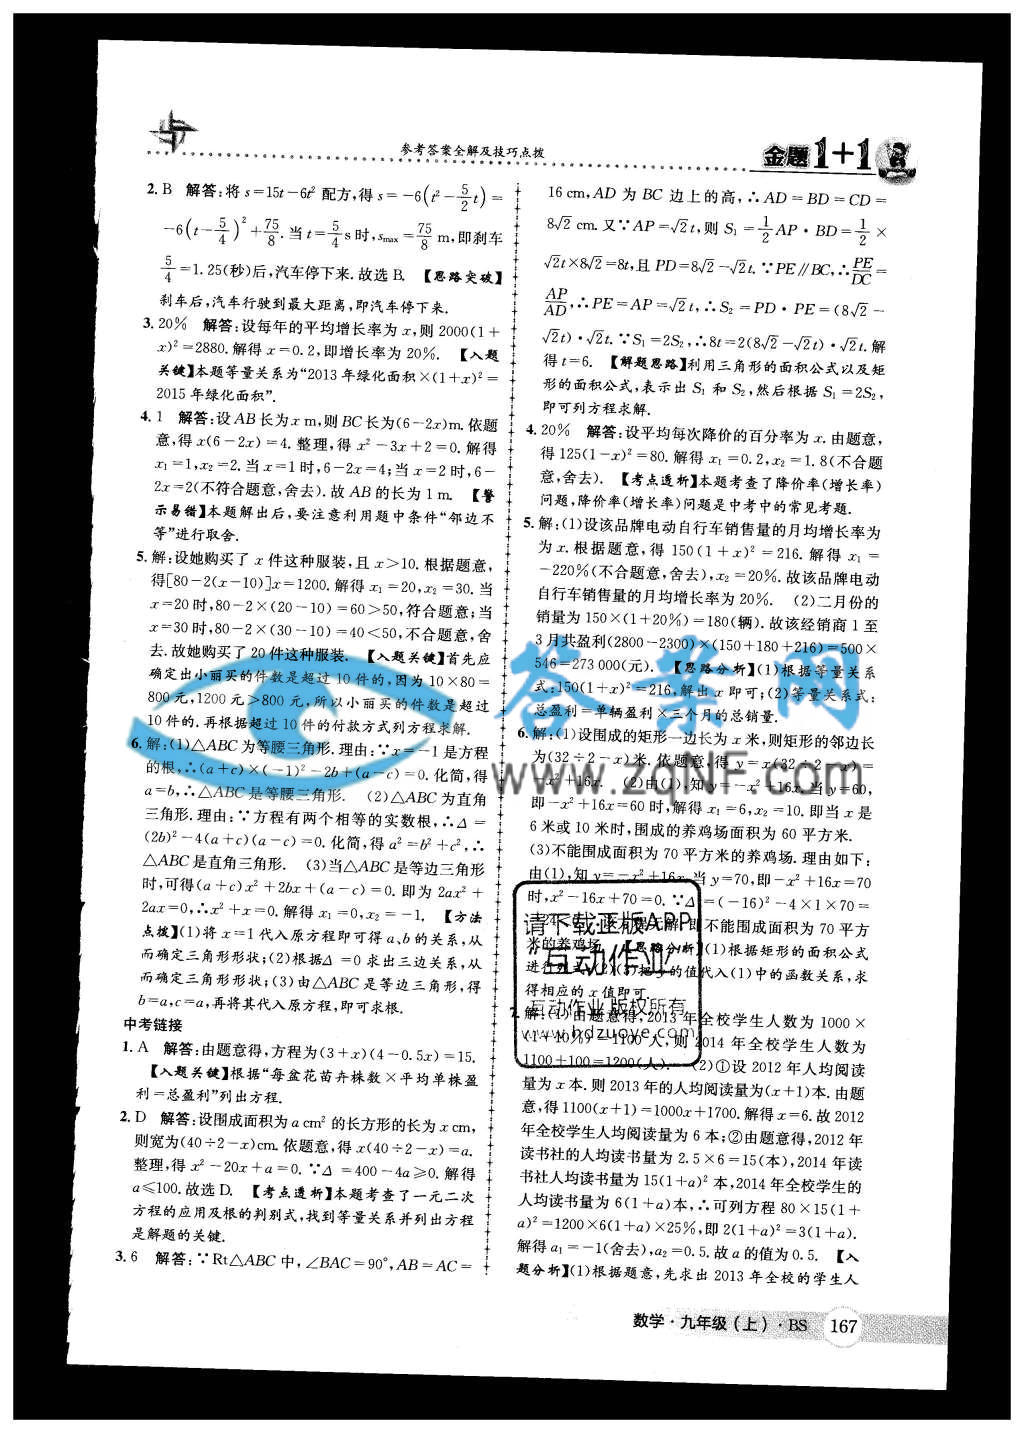 参考答案全解及技巧点拨
金题1+1
2. B 解答:将 s=15t-6t² 配方,得 s=-6(t²-5/2 t)=
-6(t-5/4)²+75/8. 当 t=5/4 s 时, smax=75/8 m,即刹车
5/4=1.25(秒)后,汽车停下来. 故选 B. 【思路突破】
刹车后,汽车行驶到最大距离,即汽车停下来.
3. 20% 解答:设每年的平均增长率为 x,则 2000(1+
x)²=2880. 解得 x=0.2,即增长率为 20%. 【入题
关键】本题等量关系为“2013 年绿化面积×(1+x)²=
2015 年绿化面积”.
4. 1 解答:设 AB 长为 x m,则 BC 长为(6-2x)m. 依题
意,得 x(6-2x)=4. 整理,得 x²-3x+2=0. 解得
x₁=1,x₂=2. 当 x=1 时,6-2x=4;当 x=2 时,6-
2x=2(不符合题意,舍去). 故 AB 的长为 1 m. 【警
示易错】本题解出后,要注意利用题中条件“邻边不
等”进行取舍.
5. 解:设她购买了 x 件这种服装,且 x>10. 根据题意,
得[80-2(x-10)]x=1200. 解得 x₁=20,x₂=30. 当
x=20 时,80-2×(20-10)=60>50,符合题意;当
x=30 时,80-2×(30-10)=40<50,不合题意,舍
去. 故她购买了 20 件这种服装. 【入题关键】首先应
确定出小丽买的件数是超过 10 件的,因为 10×80=
800 元,1200 元>800 元,所以小丽买的件数是超过
10 件的. 再根据超过 10 件的付款方式列方程求解.
6. 解:(1)△ABC 为等腰三角形. 理由:∵x=-1 是方程
的根,∴(a+c)×(-1)²-2b+(a-c)=0. 化简,得
a=b,∴△ABC 是等腰三角形. (2)△ABC 为直角
三角形. 理由:∵方程有两个相等的实数根,∴Δ=
(2b)²-4(a+c)(a-c)=0. 化简,得 a²=b²+c²,∴
△ABC 是直角三角形. (3)当△ABC 是等边三角形
时,可得(a+c)x²+2bx+(a-c)=0. 即为 2ax²+
2ax=0,∴x²+x=0. 解得 x₁=0,x₂=-1. 【方法
点拨】(1)将 x=1 代入原方程即可得 a、b 的关系,从
而确定三角形形状;(2)根据Δ=0 求出三边关系,从
而确定三角形形状;(3)由△ABC 是等边三角形,得
b=a,c=a,再将其代入原方程,即可求根.
中考链接
1. A 解答:由题意得,方程为(3+x)(4-0.5x)=15.
【入题关键】根据“每盆花苗卉株数×平均单株盈
利=总盈利”列出方程.
2. D 解答:设围成面积为 a cm² 的长方形的长为 x cm,
则宽为(40÷2-x)cm. 依题意,得 x(40÷2-x)=a.
整理,得 x²-20x+a=0. ∵Δ=400-4a≥0. 解得
a≤100. 故选 D. 【考点透析】本题考查了一元二次
方程的应用及根的判别式,找到等量关系并列出方程
是解题的关键.
3. 6 解答:∵Rt△ABC 中,∠BAC=90°,AB=AC=
16 cm,AD 为 BC 边上的高,∴AD=BD=CD=
8√2 cm. 又∵AP=√2t,则 S₁=1/2 AP·BD=1/2×
√2t×8√2=8t,且 PD=8√2-√2t. ∵PE∥BC,∴PE/DC=
AP/AD,∴PE=AP=√2t,∴S₂=PD·PE=(8√2-
√2t)·√2t. ∵S₁=2S₂,∴8t=2(8√2-√2t)·√2t. 解
得 t=6. 【解题思路】利用三角形的面积公式以及矩
形的面积公式,表示出 S₁ 和 S₂,然后根据 S₁=2S₂,
即可列方程求解.
4. 20% 解答:设平均每次降价的百分率为 x. 由题意,
得 125(1-x)²=80. 解得 x₁=0.2,x₂=1.8(不合题
意,舍去). 【考点透析】本题考查了降价率(增长率)
问题,降价率(增长率)问题是中考中的常见考题.
5. 解:(1)设该品牌电动自行车销售量的月均增长率为
为 x. 根据题意,得 150(1+x)²=216. 解得 x₁=
-220%(不合题意,舍去),x₂=20%. 故该品牌电动
自行车销售量的月均增长率为 20%. (2)二月份的
销量为 150×(1+20%)=180(辆). 故该经销商 1 至
3 月共盈利(2800-2300)×(150+180+216)=500×
546=273 000(元). 【思路分析】(1)根据等量关系
式:150(1+x)²=216,解出 x 即可;(2)等量关系式:
总盈利=单辆盈利×三个月的总销量.
6. 解:(1)设围成的矩形一边长为 x 米,则矩形的邻边长
为(32÷2-x)米. 依题意,得 y=x(32÷2-x)=
-x²+16x. (2)由(1),知 y=-x²+16x. 当 y=60,
即-x²+16x=60 时,解得 x₁=6,x₂=10. 即当 x 是
6 米或 10 米时,围成的养鸡场面积为 60 平方米.
(3)不能围成面积为 70 平方米的养鸡场. 理由如下:
由(1),知 y=-x²+16x. 当 y=70,即-x²+16x=70
时,x²-16x+70=0. ∵Δ=(-16)²-4×1×70=
-24 方程无解. 即不能围成面积为 70 平方
米的养鸡场. 【思路分析】(1)根据矩形的面积公式
进行 (2)(3)把 y 的值代入(1)中的函数关系,求
得相应的 x 值即可.
7. 解:(1)由题意得,2013 年全校学生人数为 1000×
(1+10%)=1100 人,则 2014 年全校学生人数为
1100+100=1200(人). (2)①设 2012 年人均阅读
量为 x 本. 则 2013 年的人均阅读量为(x+1)本. 由题
意,得 1100(x+1)=1000x+1700. 解得 x=6. 故 2012
年全校学生人均阅读量为 6 本;②由题意得,2012 年
读书社的人均读书量为 2.5×6=15(本),2014 年读
书社人均读书量为 15(1+a)² 本,2014 年全校学生的
人均读书量为 6(1+a)本,∴可列方程 80×15(1+
a)²=1200×6(1+a)×25%,即 2(1+a)²=3(1+a).
解得 a₁=-1(舍去),a₂=0.5. 故 a 的值为 0.5. 【入
题分析】(1)根据题意,先求出 2013 年全校的学生人
答案网
www.zqnf.com
请下载正版APP
互动作业
互动作业 版权所有
www.hdzuoye.com
数学·九年级(上)·BS 167